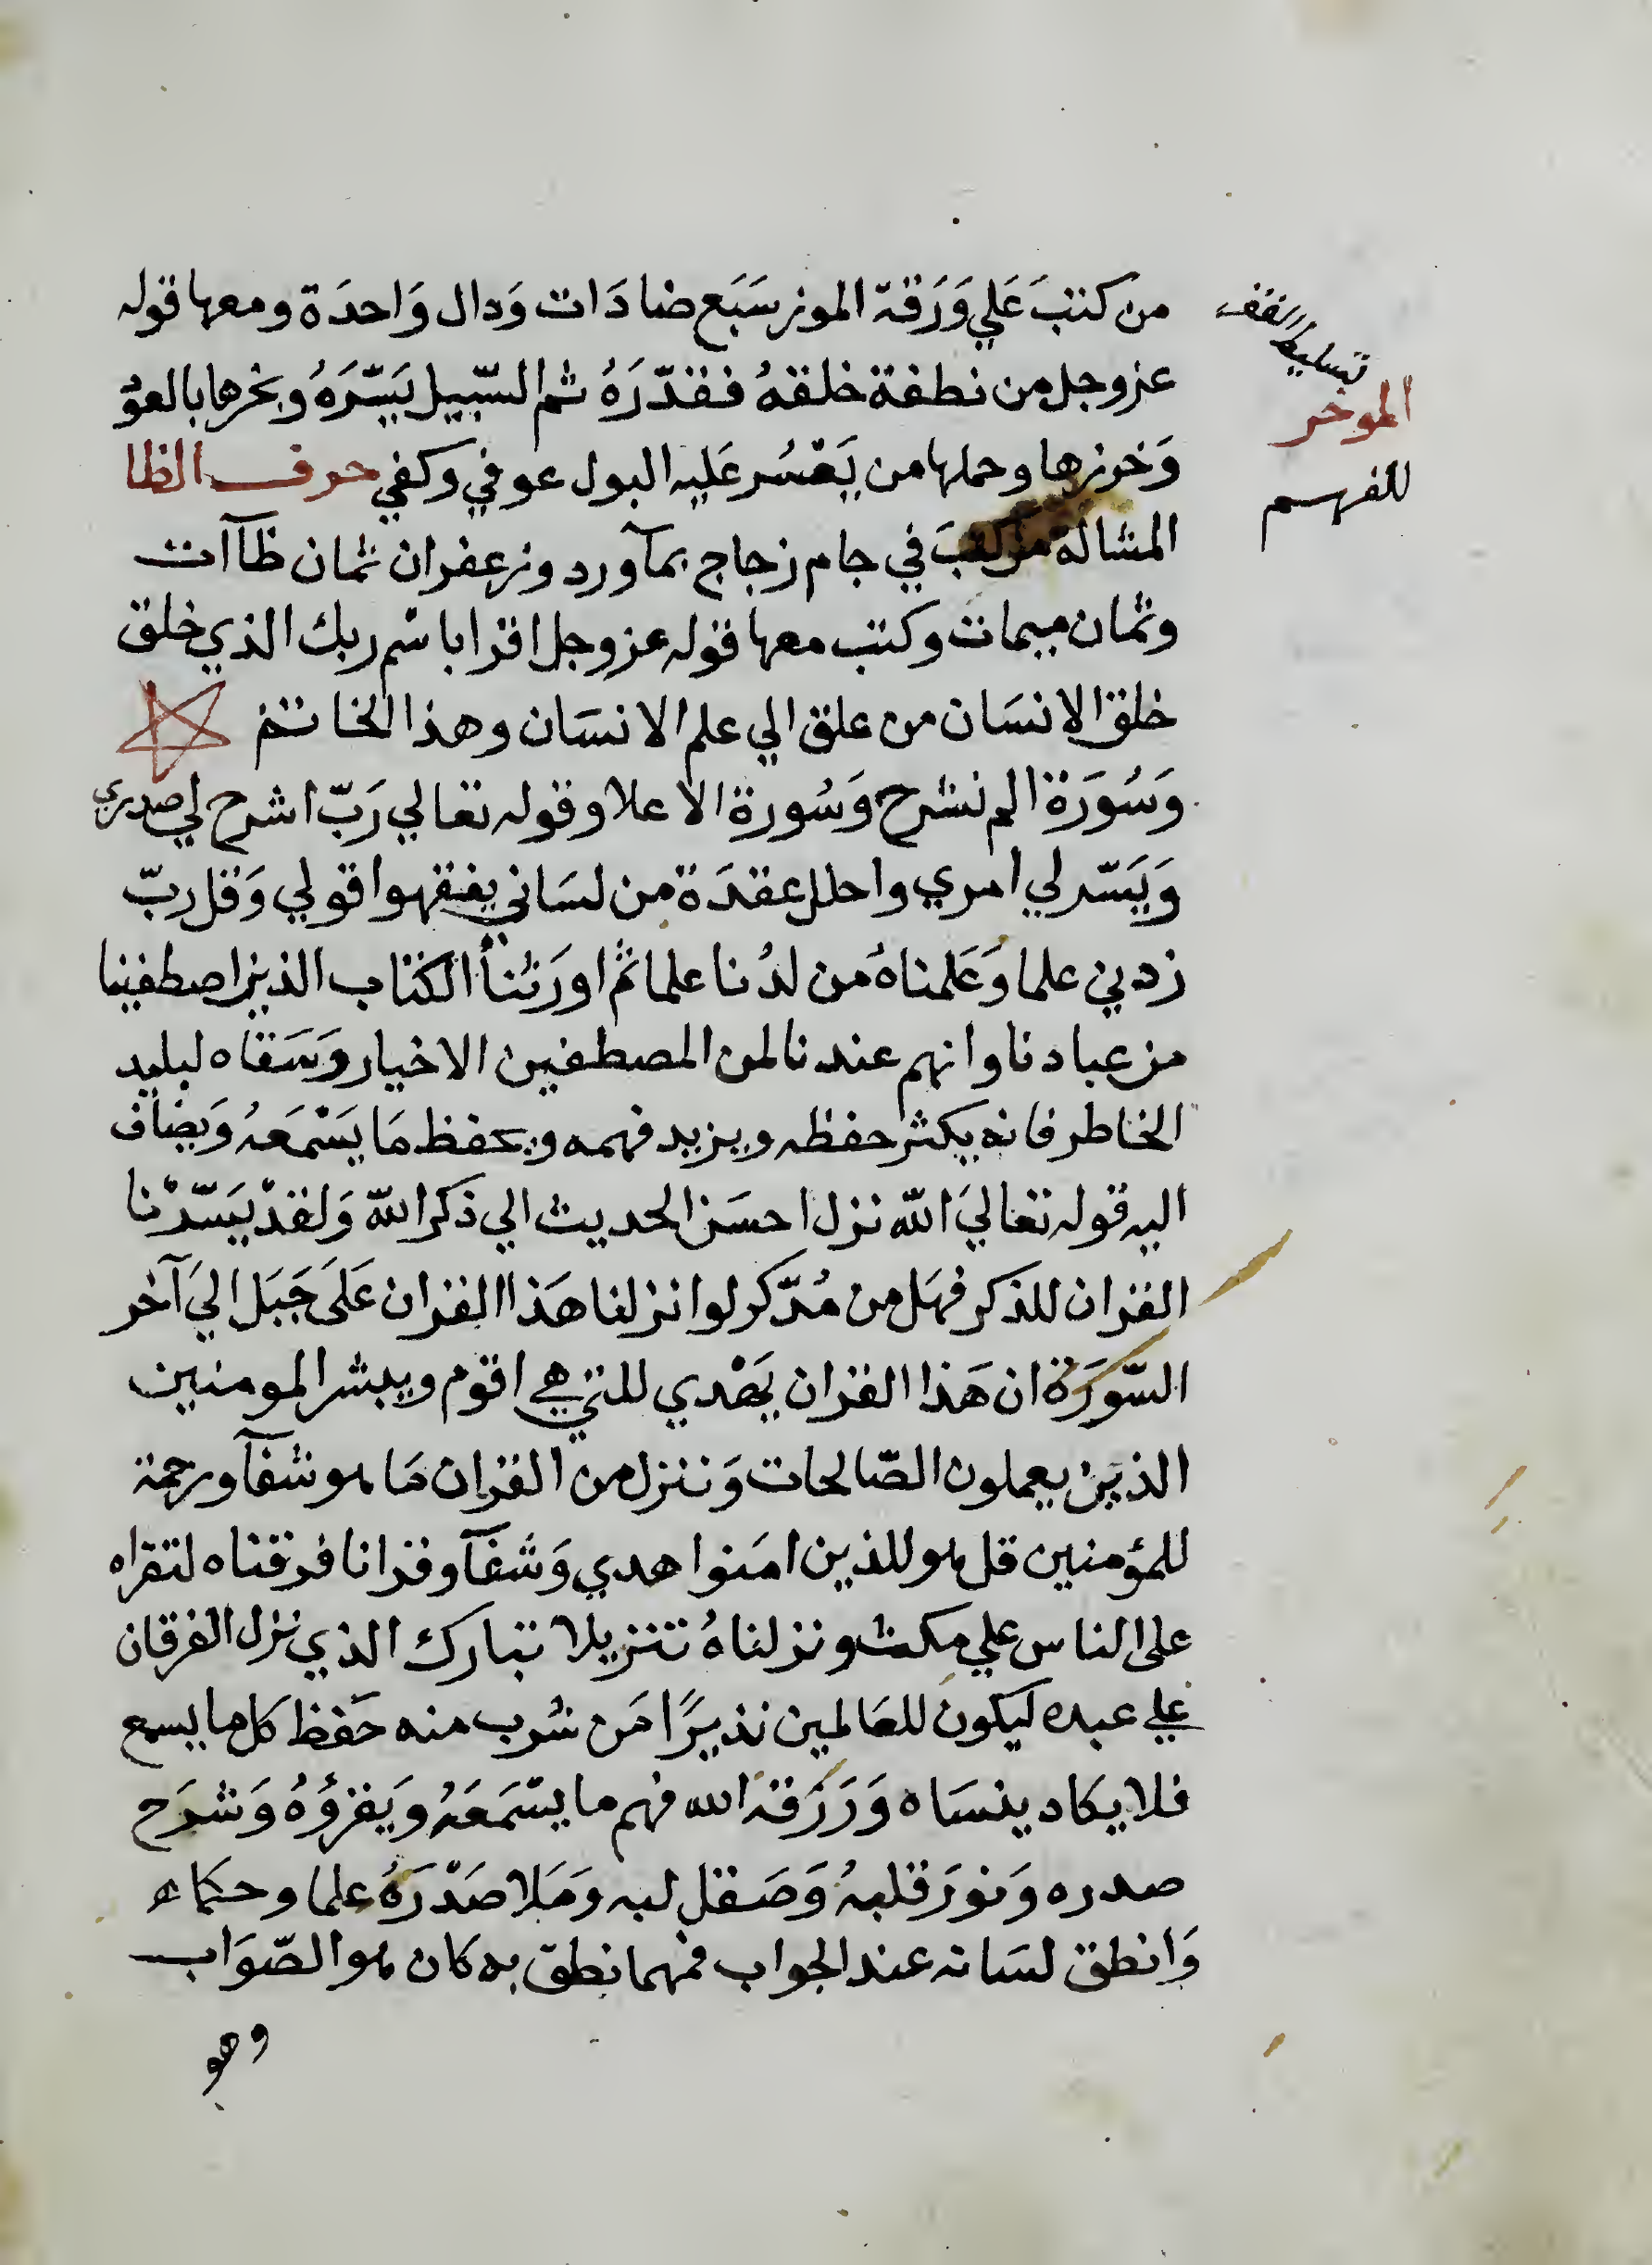 من كتبَ عَلي وَرَقة الموز سَبَع ضادَات وَدال وَاحدَة ومعها قوله
عزوجل من نطفة خلقهُ فقدّرَهُ ثم السّبيل يَسّرَهُ وبخرها بالعود
وَخرزها وحملها من يَعْسُر عَليه البول عوفي وكفي حرف الظا
المشالة من كتبَ في جام زجاج بمآورد وزعفران ثمان ظاآت
وثمان ميمات وكتب معها قوله عزوجل اقرا باسْم ربك الذي خلق
خلق الانسَان من علق الي علم الانسَان وهذا الخاتم
وَسُورَة الم نشرح وَسُورة الاعلا وقوله تعالي رَبّ اشرح لي صدري
وَيَسّر لي امري واحلل عقدَة من لسَاني يفقهوا قولي وَقل ربّ
زدني علما وَعَلمناهُ من لدُنا علما ثم اورَثنا الكتاب الذين اصطفينا
من عبادنا وانهم عندنا لمن المصطفين الاخيار وَسَقاه لبليد
الخاطر فانه يكثر حفظه ويزيد فهمه ويحفظ مَا يَسْمَعهُ وَيضاف
اليه قوله تعاليَ اللّه نزل احسَن الحديث الي ذكر اللّه وَلقدْ يَسّرْنا
القران للذكر فهَل من مُدّكر لو انزلنا هَذا القران عَلَى جَبَل اليَ آخر
السّورَة ان هَذا القران يَهْدي للتي هي اقوم ويبشر المومنين
الذين يعملون الصّالحات وَننزل من القران مَا هو شفآ ورحمة
للمؤمنين قل هو للذين امَنوا هدي وَشفآ وقرانا فرقناه لتقراه
على الناس علي مكث ونزلناهُ تنزيلا تبارك الذي نزل الفرقان
علي عبده ليكون للعَالمين نذيرًا مَن شرب منه حَفظ كل ما يسمع
فلا يكاد ينسَاه وَرَزَقهَ الله فهم ما يسْمَعَهُ وَيَقرؤُهُ وَشرَح
صدره وَنورَ قلبهُ وَصَقل لبه وَمَلا صَدْرَهُ علما وحكما
وَانطق لسَانه عند الجواب فمهما نطق به كان هو الصّوَاب
وهو
الموخر
للفهم